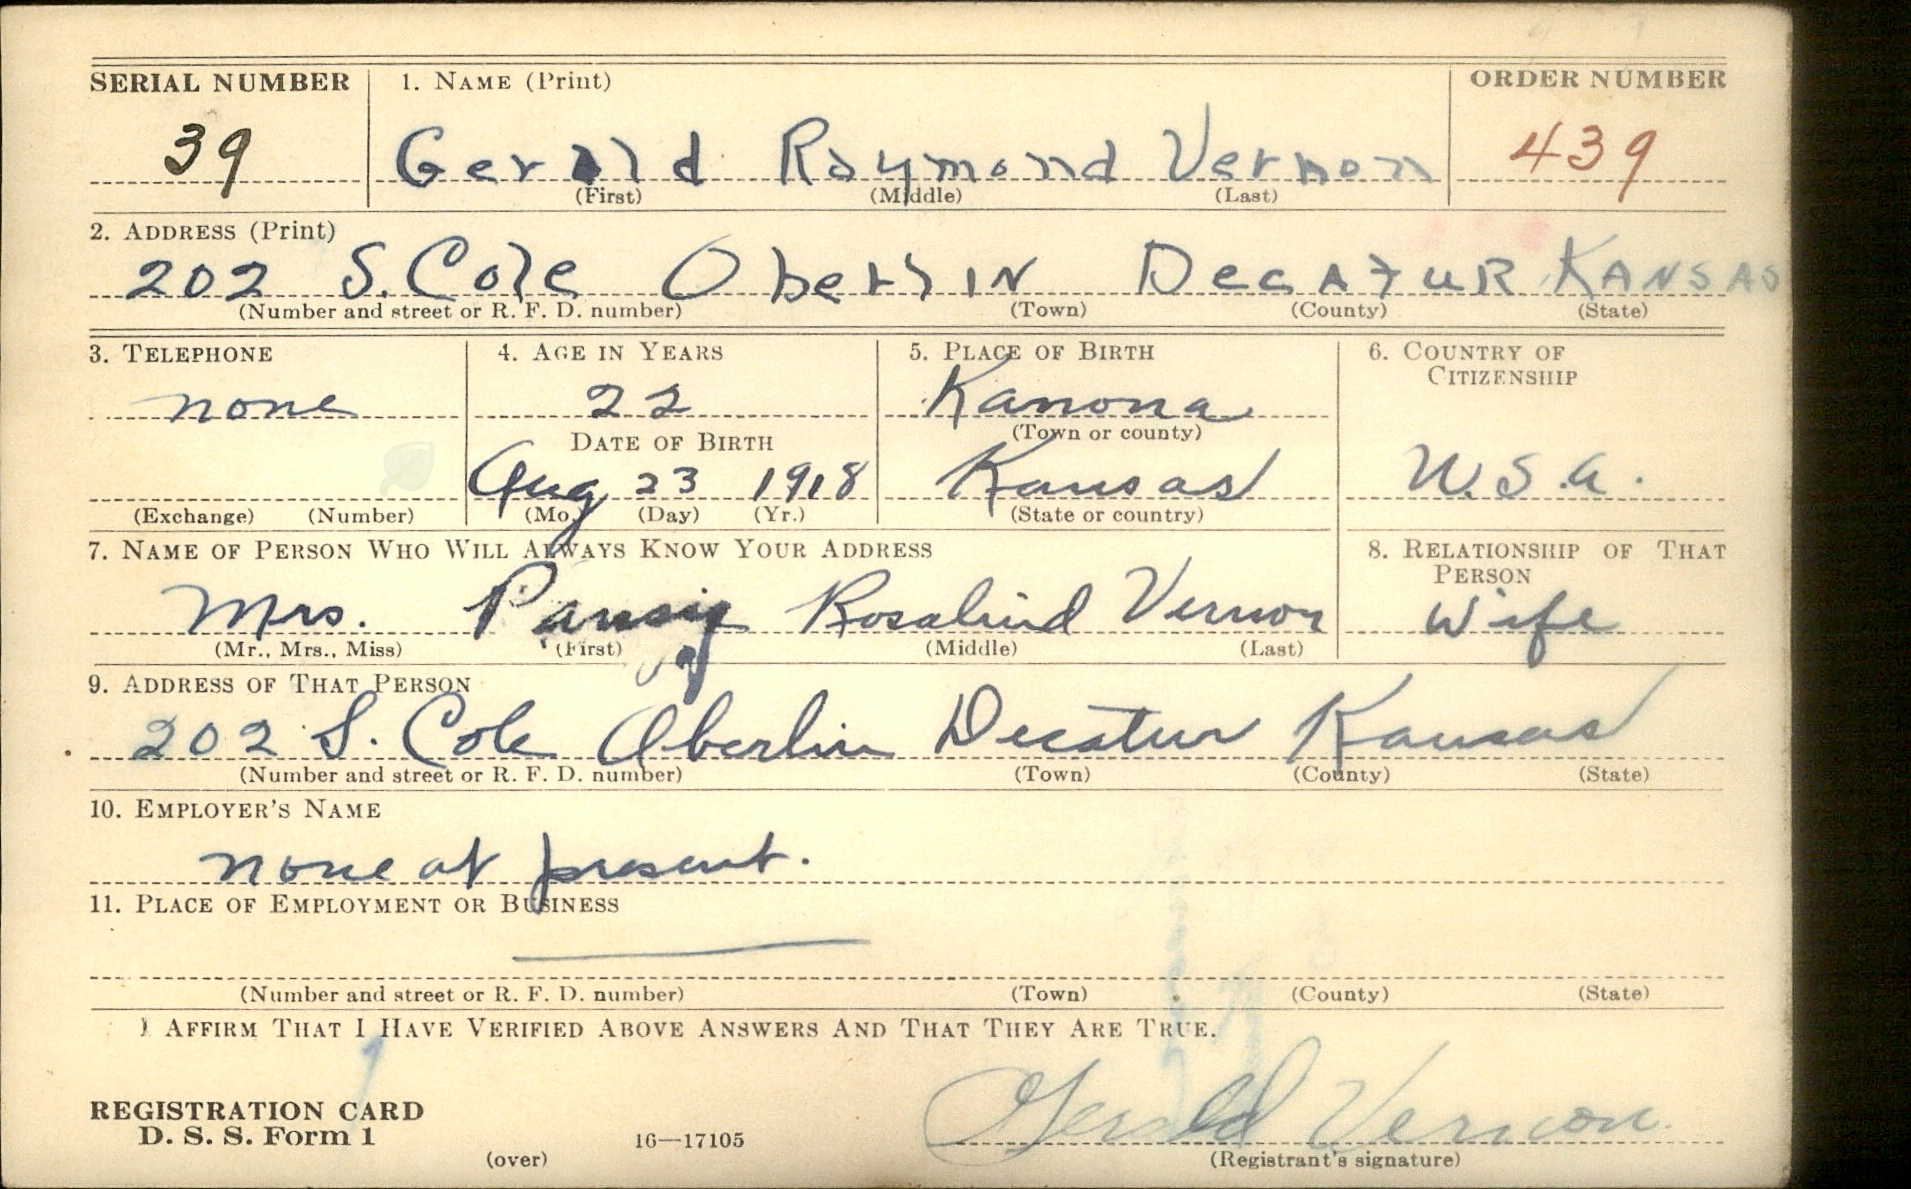 SERIAL NUMBER 1. NAME (Print) ORDER NUMBER
39 Gerald Raymond Vernon 439
(First) (Middle) (Last)
2. ADDRESS (Print)
202 S. Cole Oberlin Decatur Kansas
(Number and street or R. F. D. number) (Town) (County) (State)
3. TELEPHONE 4. AGE IN YEARS 5. PLACE OF BIRTH 6. COUNTRY OF CITIZENSHIP
none 22 Kanona
DATE OF BIRTH (Town or county)
Aug 23 1918 Kansas U.S.a.
(Exchange) (Number) (Mo.) (Day) (Yr.) (State or country)
7. NAME OF PERSON WHO WILL ALWAYS KNOW YOUR ADDRESS 8. RELATIONSHIP OF THAT PERSON
Mrs. Rosalind Vernon Wife
(Mr., Mrs., Miss) (First) (Middle) (Last)
9. ADDRESS OF THAT PERSON
202 S. Cole Oberlin Decatur Kansas
(Number and street or R. F. D. number) (Town) (County) (State)
10. EMPLOYER'S NAME
none at present.
11. PLACE OF EMPLOYMENT OR BUSINESS
(Number and street or R. F. D. number) (Town) (County) (State)
I AFFIRM THAT I HAVE VERIFIED ABOVE ANSWERS AND THAT THEY ARE TRUE.
REGISTRATION CARD
D. S. S. Form 1 16—17105 Gerald Vernon
(over) (Registrant's signature)